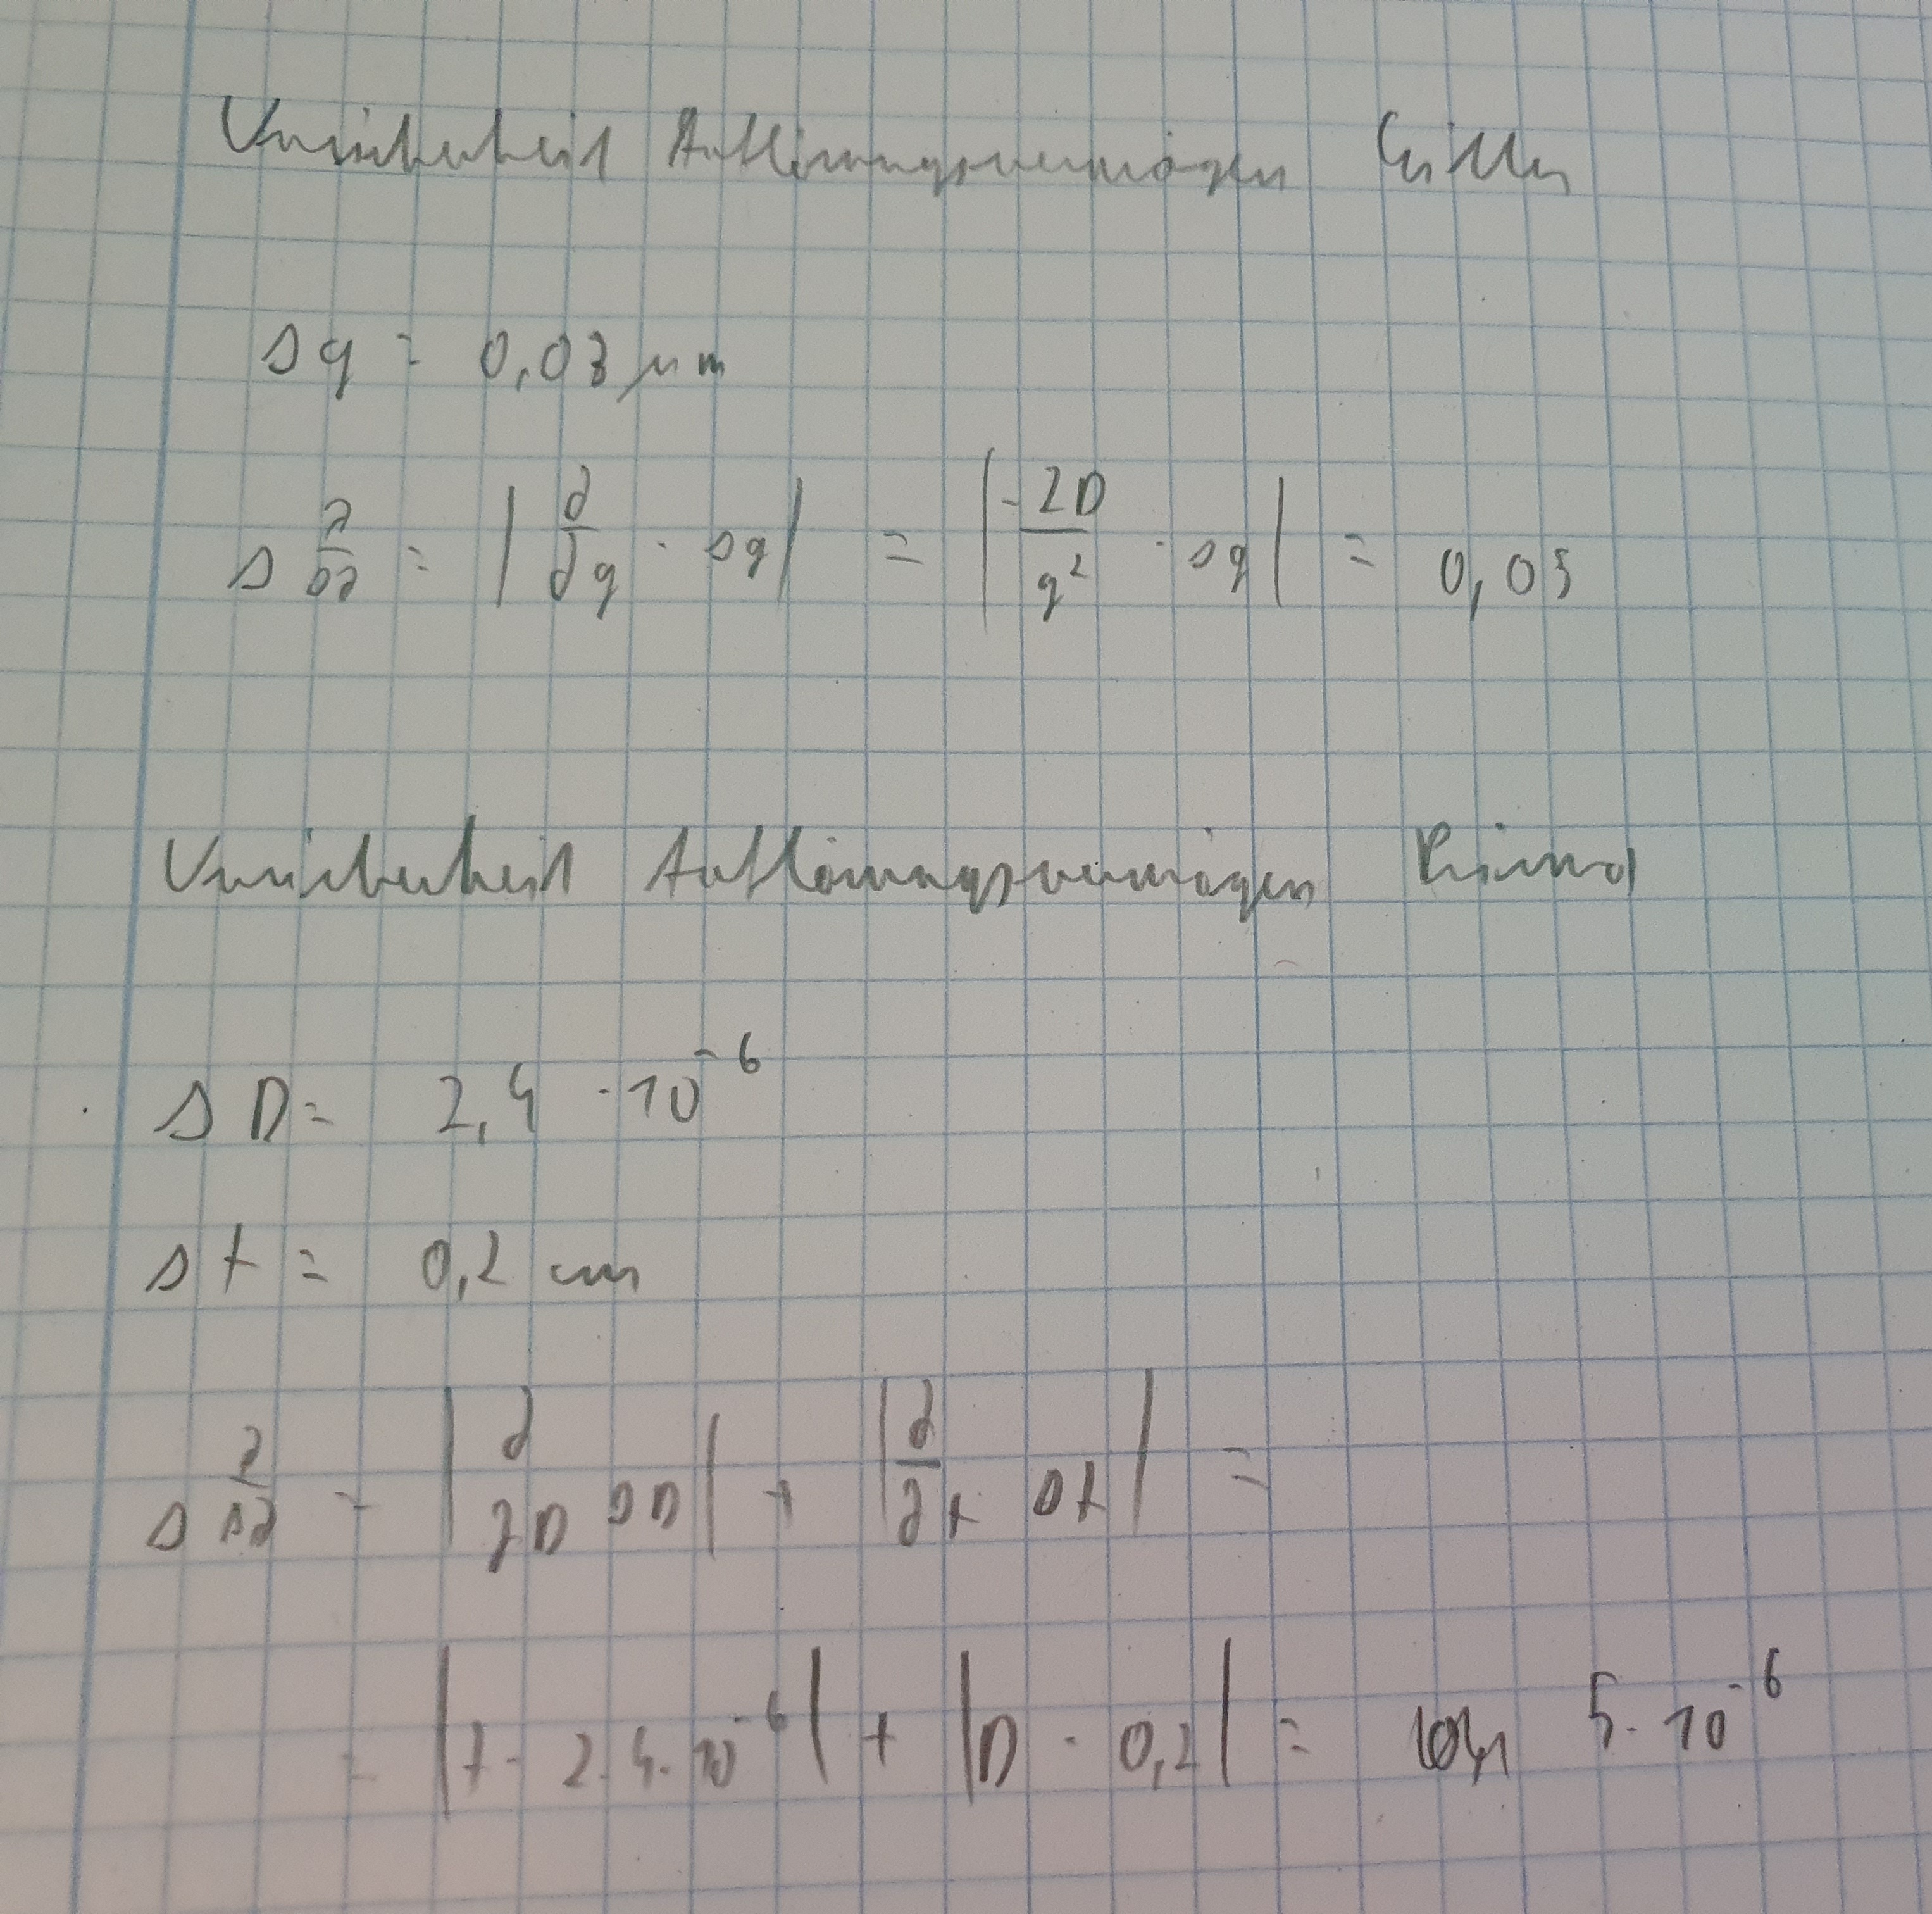 Unsicherheit Auflösungsvermögen Gitter
Δg = 0,03 μm
Δ λ/Δλ = | ∂/∂g · Δg | = | -2D/g² · Δg | = 0,05
Unsicherheit Auflösungsvermögen Prisma
ΔD = 2,4 · 10⁻⁶
Δt = 0,2 cm
Δ λ/Δλ = | ∂/∂D ΔD | + | ∂/∂t Δt | =
= | t · 2.4 · 10⁻⁶ | + | D · 0,2 | = 5 · 10⁻⁶